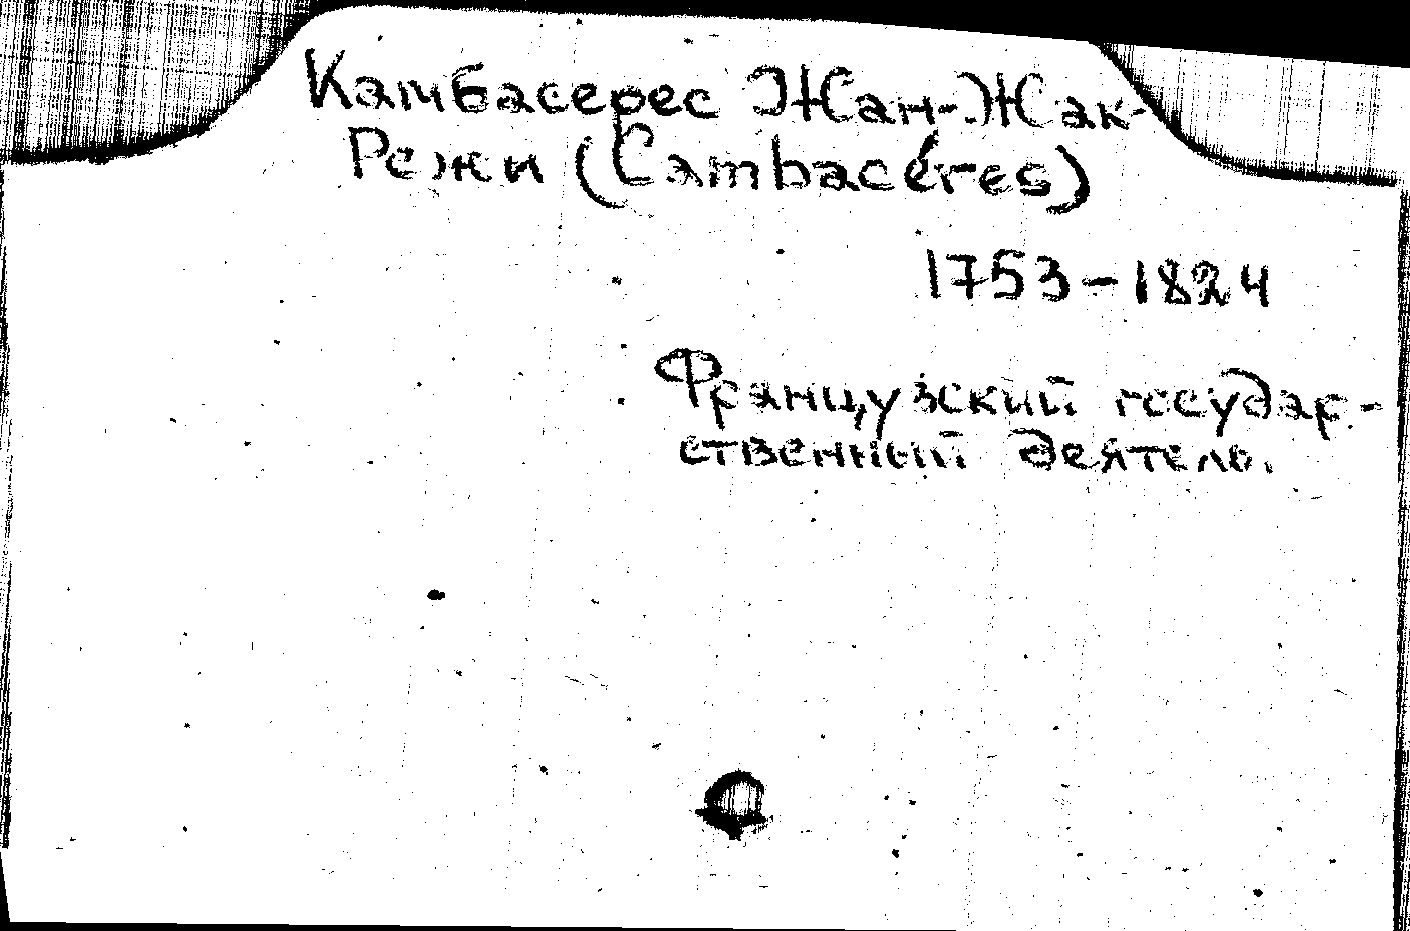 Камбасерес Жан-Жак-
Режи (Cambacéres)
1753-1824
Французский государ-
ственный деятель.